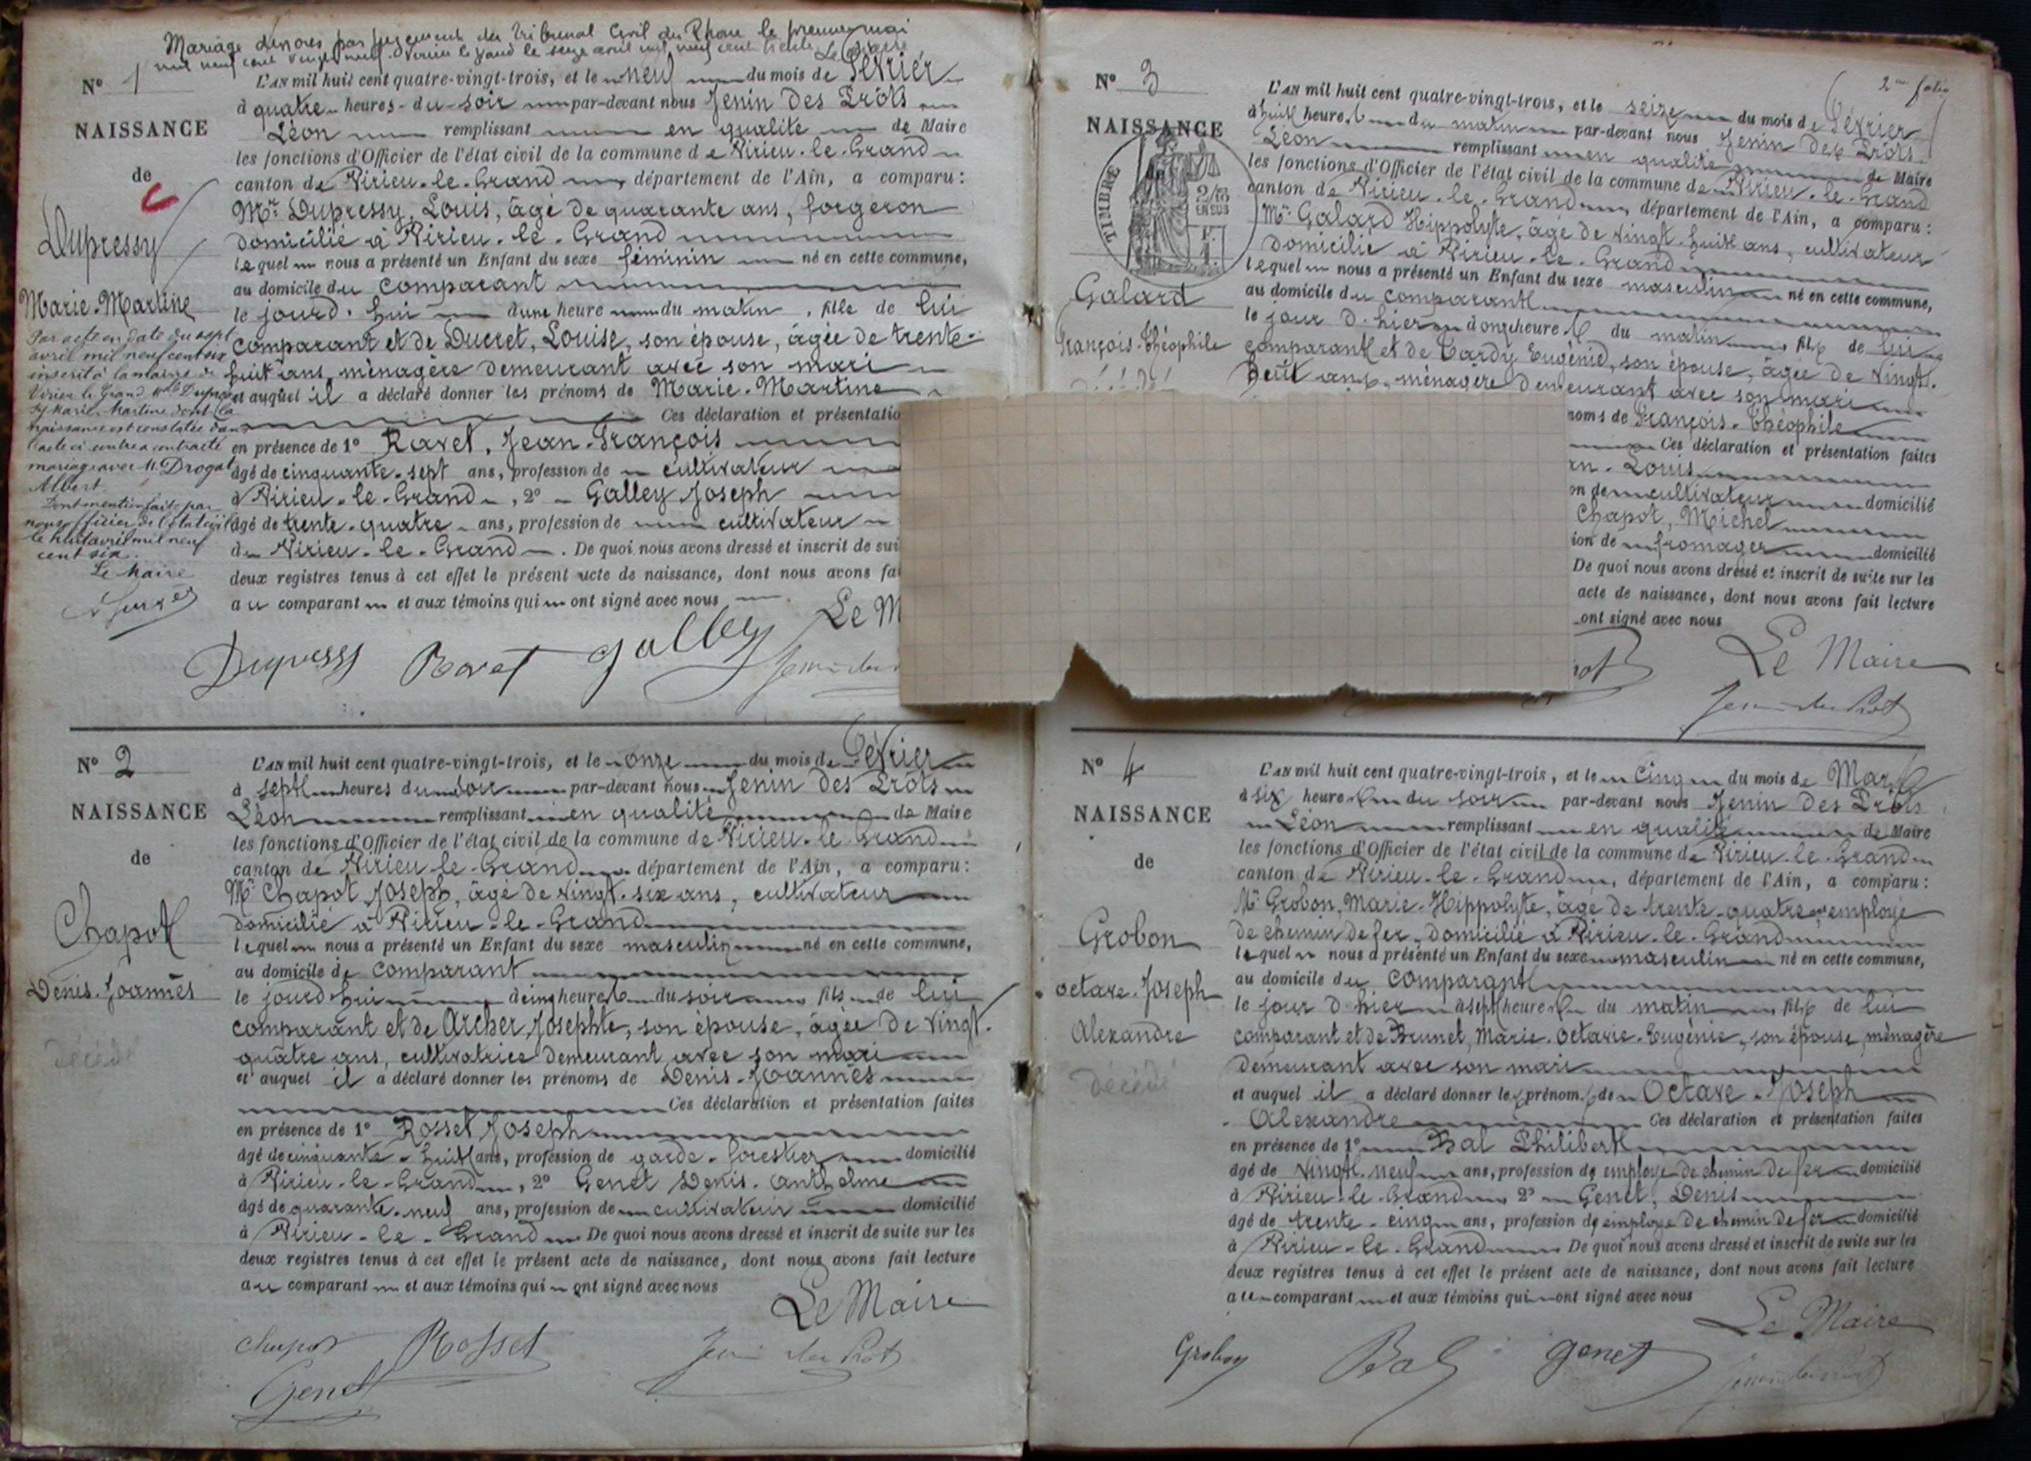 Mariage dissous par jugement du Tribunal Civil du Rhône le premier mai
mil neuf cent vingt neuf. Virieu le Grand le seize avril mil neuf cent trente Le Maire
N° 1
NAISSANCE
de
Dupressy
Marie-Martine
Par acte en date du sept
avril mil neuf cent six
inscrit à la mairie de
Virieu le Grand Mlle Dupres
sy Marie Martine dont la
naissance est constatée dans
l'acte ci contre a contracté
mariage avec M. Drogat
Albert
Dont mention faite par
nous officier de l'état civil
le huit avril mil neuf
cent six.
Le Maire
L'AN mil huit cent quatre-vingt-trois, et le neuf du mois de Février
à quatre heures du soir par-devant nous Jenin Des Prôts
Léon remplissant en qualité de Maire
les fonctions d'Officier de l'état civil de la commune de Virieu-le-Grand
canton de Virieu-le-Grand, département de l'Ain, a comparu:
Mr Dupressy, Louis, âgé de quarante ans, forgeron
domicilié à Virieu-le-Grand
lequel nous a présenté un Enfant du sexe féminin né en cette commune,
au domicile du comparant
le jourd'hui d'une heure du matin, fille de lui
comparant et de Ducret, Louise, son épouse, âgée de trente-
huit ans ménagère demeurant avec son mari
et auquel il a déclaré donner les prénoms de Marie-Martine
Ces déclaration et présentatio
en présence de 1° Ravet, Jean-François
âgé de cinquante-sept ans, profession de cultivateur
à Virieu-le-Grand, 2° Galley Joseph
âgé de trente-quatre ans, profession de cultivateur
du Virieu-le-Grand. De quoi nous avons dressé et inscrit de sui
deux registres tenus à cet effet le présent acte de naissance, dont nous avons fai
au comparant et aux témoins qui ont signé avec nous
Le M
Dupressy Ravet Galley
N° 2
NAISSANCE
de
Chapot
Denis-Joannès
décédé
L'AN mil huit cent quatre-vingt-trois, et le onze du mois de Février
à sept heures du soir par-devant nous Jenin Des Prôts
Léon remplissant en qualité de Maire
les fonctions d'Officier de l'état civil de la commune de Virieu-le-Grand
canton de Virieu-le-Grand département de l'Ain, a comparu:
Mr Chapot Joseph, âgé de vingt-six ans, cultivateur
domicilié à Virieu-le-Grand
lequel nous a présenté un Enfant du sexe masculin né en cette commune,
au domicile de comparant
le jourd'hui à cinq heures du soir fils de lui
comparant et de Archer Josephte, son épouse, âgée de vingt-
quatre ans, cultivatrice demeurant avec son mari
et auquel il a déclaré donner les prénoms de Denis-Joannès
Ces déclaration et présentation faites
en présence de 1° Rosset Joseph
âgé de cinquante-huit ans, profession de garde-forestier domicilié
à Virieu-le-Grand, 2° Genet Denis-Anthelme
âgé de quarante-neuf ans, profession de cultivateur domicilié
à Virieu-le-Grand De quoi nous avons dressé et inscrit de suite sur les
deux registres tenus à cet effet le présent acte de naissance, dont nous avons fait lecture
au comparant et aux témoins qui ont signé avec nous
Le Maire
Chapot Rosset Jenin des Prots
Genet
2me folio
N° 3
NAISSANCE
TIMBRE
2/10
EN SUS
Galard
François-Théophile
décédé
L'AN mil huit cent quatre-vingt-trois, et le seize du mois de Février
à huit heures du matin par-devant nous Jenin des Prôts
Léon remplissant en qualité de Maire
les fonctions d'Officier de l'état civil de la commune de Virieu-le-Grand
canton de Virieu-le-Grand, département de l'Ain, a comparu:
Mr Galard Hippolyte, âgé de vingt-huit ans, cultivateur
domicilié à Virieu-le-Grand
lequel nous a présenté un Enfant du sexe masculin né en cette commune,
au domicile du comparant
le jour d'hier à onze heures du matin fils de lui
comparant et de Tardy Eugénie, son épouse, âgée de vingt-
huit ans, ménagère demeurant avec son mari
noms de François-Théophile
Ces déclaration et présentation faites
an-Louis
on de cultivateur domicilié
Chapot, Michel
ion de fromager domicilié
De quoi nous avons dressé et inscrit de suite sur les
acte de naissance, dont nous avons fait lecture
ont signé avec nous
Le Maire
Jenin des Prots
N° 4
NAISSANCE
de
Grobon
Octave-Joseph
Alexandre
décédé
L'AN mil huit cent quatre-vingt-trois, et le cinq du mois de Mars
à six heures du soir par-devant nous Jenin Des Prôts
Léon remplissant en qualité de Maire
les fonctions d'Officier de l'état civil de la commune de Virieu-le-Grand
canton de Virieu-le-Grand, département de l'Ain, a comparu:
Mr Grobon, Marie-Hippolyte, âgé de trente-quatre employé
de chemin de fer, domicilié à Virieu-le-Grand
lequel nous a présenté un Enfant du sexe masculin né en cette commune,
au domicile du comparant
le jour d'hier à sept heures du matin fils de lui
comparant et de Brunet, Marie-Octavie-Eugénie, son épouse, ménagère
demeurant avec son mari
et auquel il a déclaré donner les prénoms de Octave-Joseph
Alexandre Ces déclaration et présentation faites
en présence de 1° Bal Philibert
âgé de vingt-neuf ans, profession de employé de chemin de fer domicilié
à Virieu-le-Grand 2° Genet, Denis
âgé de trente-cinq ans, profession de employé de chemin de fer domicilié
à Virieu-le-Grand De quoi nous avons dressé et inscrit de suite sur les
deux registres tenus à cet effet le présent acte de naissance, dont nous avons fait lecture
au comparant et aux témoins qui ont signé avec nous
Le Maire
Grobon Bal Genet